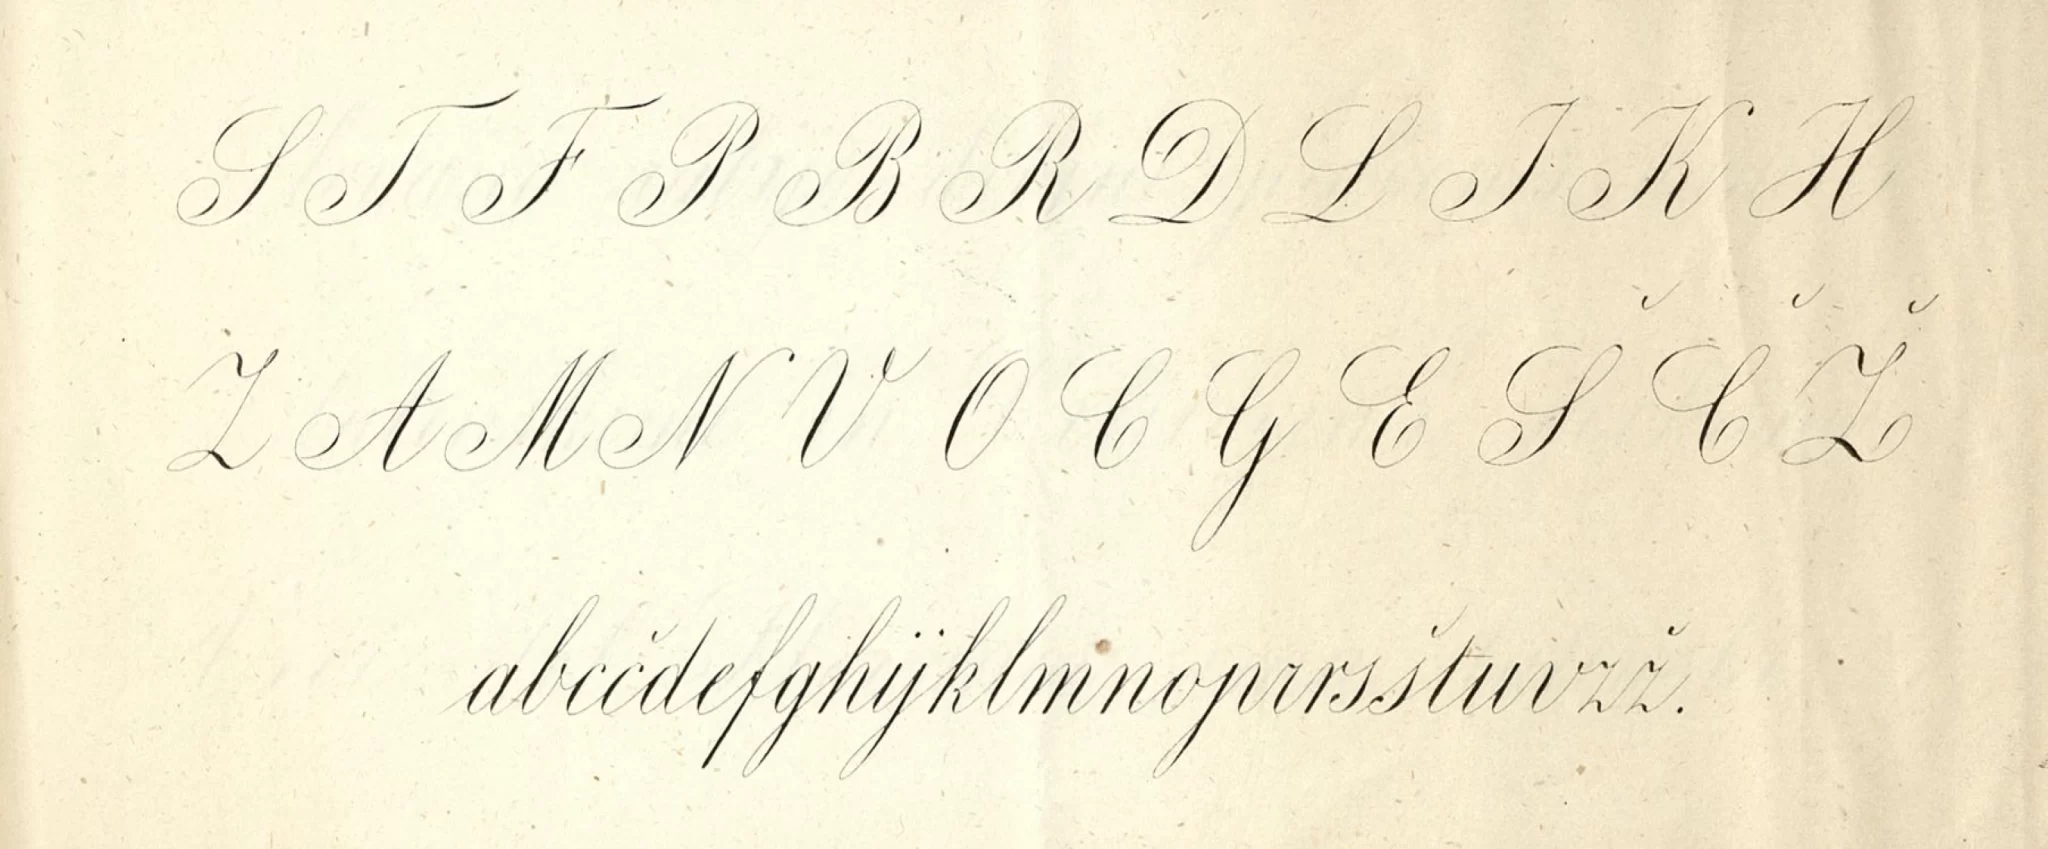 S T F P B R D L I K H
Z A M N V O C G E Š Č Ž
abccčdefghijklmnoprrsštuvzž.